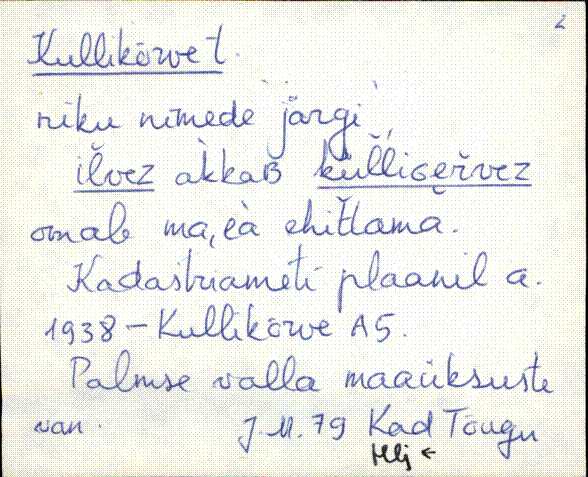 2
Kullikõrve t.
riku nimede järgi
ilvez akkaB kulliGervez
omale ma,ea ehitlama.
Kadastriameti plaanil a.
1938 – Kullikõrve A5.
Palmse valla maaüksuste
van. J.M. 79 Kad Tõugu
Hlj ←